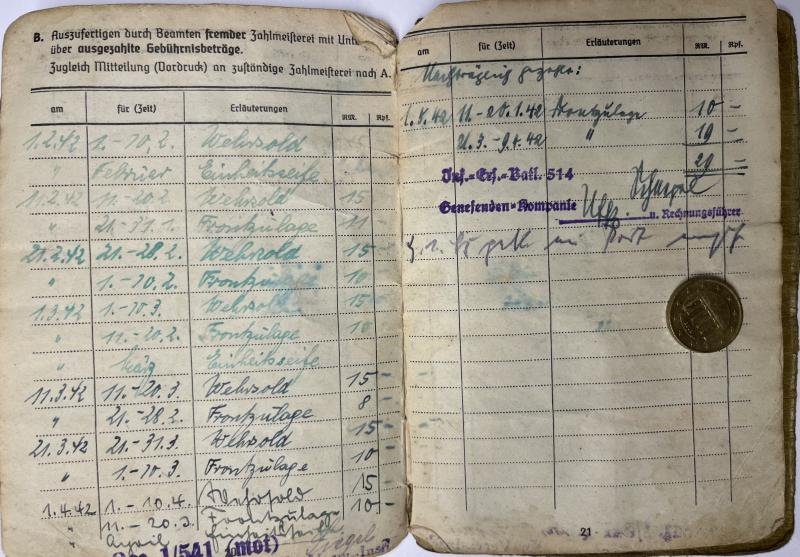 B. Auszufertigen durch Beamten fremder Zahlmeisterei mit Unte
über ausgezahlte Gebührnisbeträge.
Zugleich Mitteilung (Vordruck) an zuständige Zahlmeisterei nach A.
am für (Zeit) Erläuterungen RM. Rpf.
1.2.42 1.-10.2. Wehrsold
" Februar Einheitsseife
11.2.42 11.-20.2. Wehrsold 15 -
" 21.-31.1. Frontzulage 11 -
21.2.42 21.-28.2. Wehrsold 15 -
" 1.-10.2. Frontzulage 10
1.3.42 1.-10.3. Wehrsold 15 -
" 11.-20.2. Frontzulage 10
" März Einheitsseife
11.3.42 11.-20.3. Wehrsold 15 -
" 21.-28.2. Frontzulage 8 -
21.3.42 21.-31.3. Wehrsold 15 -
" 1.-10.3. Frontzulage 10 -
1.4.42 1.-10.4. Wehrsold 15 -
" 11.-20.3. Frontzulage 10 -
April Einheitsseife
1/541 (mot)
am für (Zeit) Erläuterungen RM. Rpf.
Nachträglich gezahlt:
11.-20.1.42 Frontzulage 10 -
21.3.-9.4.42 " 19 -
29 -
Inf.-Ers.-Batl. 514
Genesenden-Kompanie
Uffz. u. Rechnungsführer
21